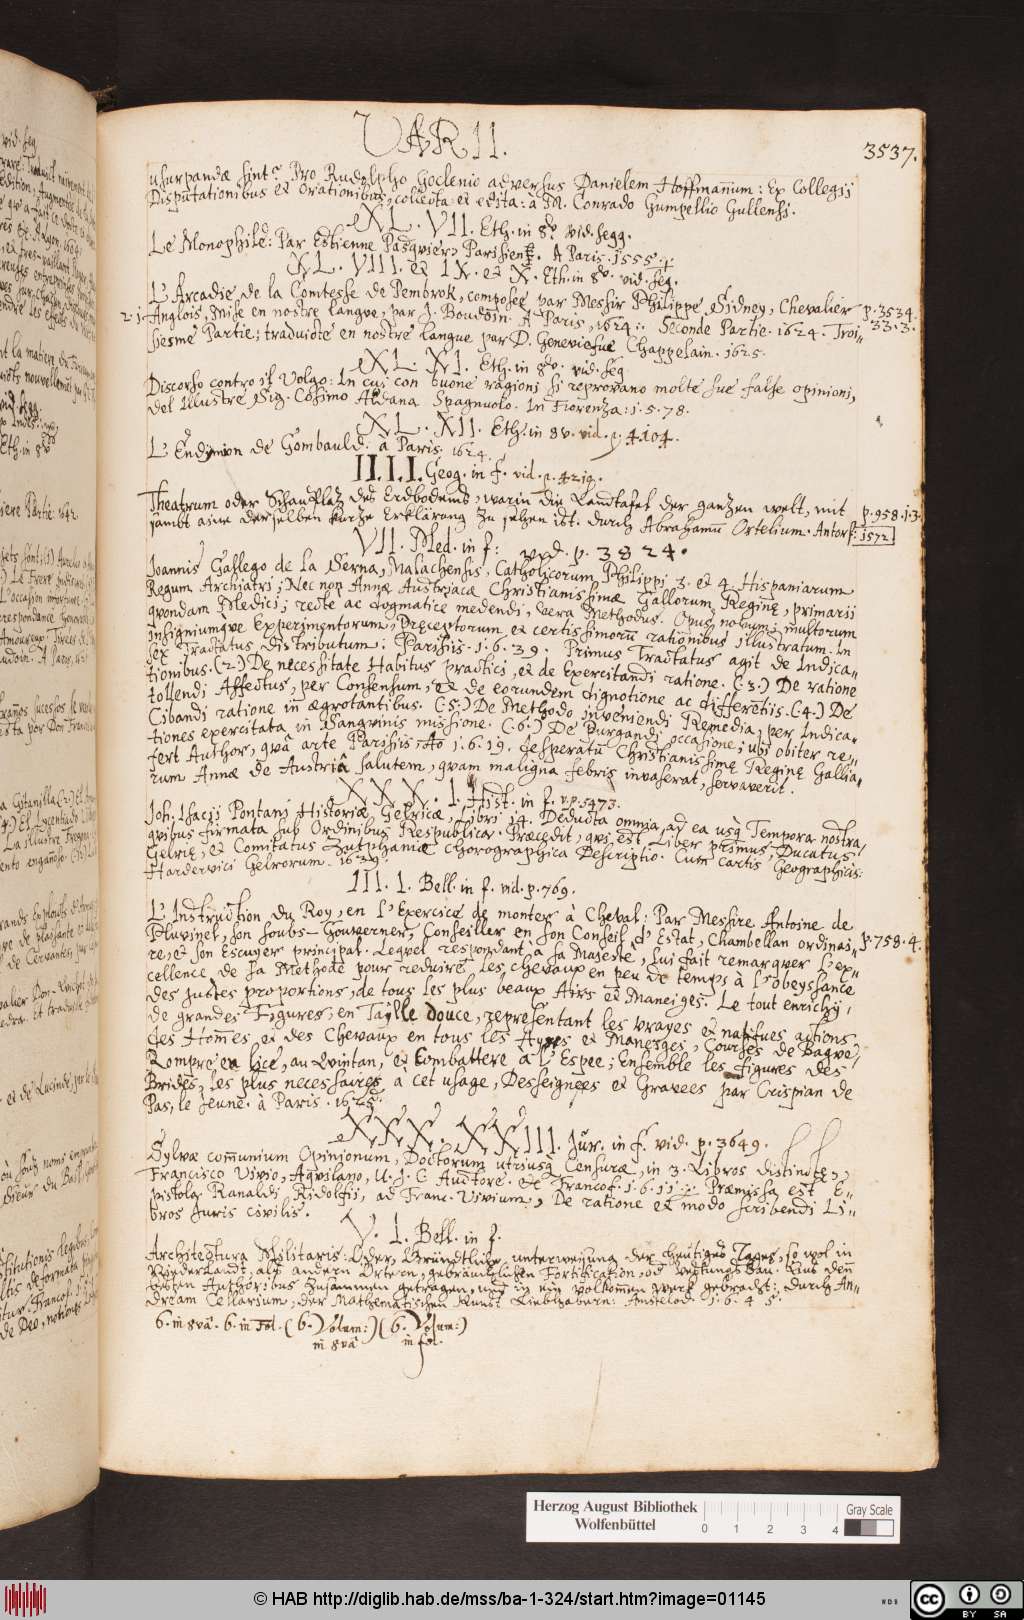 VARII.
3537.
usurpandæ sint? Pro Rudolpho Goclenio adversus Danielem Hoffmannum: Ex Collegii
Disputationibus et Orationibus, collecta et edita: à M. Conrado Gumpellio Gullensi.
XL. VII. Eth. in 8º. vid. segg.
Le Monophile: Par Estienne Pasquier, Parisien. A Paris. 1555.
XL. VIII. et IX. et X. Eth. in 8º. vid. seg.
L'Arcadie de la Comtesse de Pembrok, composee par Messir Philippe Sidney, Chevalier p. 3534.
2. 1. Anglois, Mise en nostre langue, par J. Boudoin. A Paris, 1624: Seconde Partie. 1624. Troi- 33. 3.
siesme Partie; traduicte en nostre langue par D. Geneviefue Chappelain. 1625.
XL. XI. Eth. in 8vo. vid. seg.
Discorso contro il Volgo: In cui con buone ragioni si reprovano molte sue false opinioni,
del Illustre Sig. Cosimo Aldana Spagnuolo. In Fiorenza: 1. 5. 78.
XL. XII. Eth. in 8v. vid. p. 4104.
L'Endymion de Gombauld. à Paris. 1624.
II. I. I. Geog. in f. vid. p. 4219.
Theatrum oder Schauplatz des Erdbodems, warin die Landtafel der gantzen welt, mit p. 958. 1. 3.
sambt aine derselben kurtze Erklärung zu sehen ist. durch Abrahamum Ortelium. Antorf: 1572
VII. Med. in f: vid. p. 3824.
Joannis Gallego de la Serna, Malachensis, Catholicorum Philippi 3. et 4. Hispaniarum
Regum Archiatri; Nec non Annæ Austriacæ Christianissimæ Gallorum Reginę, primarii
quondam Medici; recte ac dogmatice medendi, vera Methodus. Opus novum; multorum
insigniumque Experimentorum, Pręceptorum et certissimorū rationibus illustratum. In
sex Tractatus distributum. Parisiis. 1. 6. 39. Primus Tractatus agit de Indica-
tionibus. (2.) De necessitate Habitus practici, et de exercitandi ratione. (3.) De ratione
tollendi Affectus, per Consensum, et de eorundem dignotione ac differētiis. (4.) De
Cibandi ratione in ægrotantibus. (5.) De Methodo inveniendi Remedia, per Indica-
tiones exercitata in Sanguinis missione. (6.) De Purgandi occasione; ubi obiter re-
fert Author, quâ arte Parisiis Ao 1. 6. 19. desperatū Christianissimę Reginę Gallia-
rum Annæ de Austriâ salutem, quam maligna febris invaserat, servaverit.
XXX. I. Hist. in f. v. p. 5473.
Joh. Isacii Pontani Historiæ Gelricæ, Libri 14. Deducta omnia ad ea usq̃ Tempora nostra,
quibus firmata sub Ordinibus Respublica. Præcedit, qui est Liber primus, Ducatus
Gelrię, et Comitatus Zutphaniæ Chorographica Descriptio. Cum cartis Geographicis.
Hardervici Gelrorum. 1639.
III. I. Bell. in f. vid. p. 769.
L'Instruction du Roy, en l'Exercice de monter à Cheval: Par Messire Antoine de
Pluvinel, son soubs-Gouverneur, Conseiller en son Conseil d'Estat, Chambellan ordinai- p. 758. 4.
re, et son Escuyer principal. Lequel respondant à sa Majesté, luy fait remarquer l'ex-
cellence de sa Methode pour reduire les chevaux en peu de temps à l'obeyssance
des justes proportions, de tous les plus beaux Airs et Maneiges. Le tout enrichy,
de grandes Figures, en Taylle douce, representant les vrayes et naifues actions
des Hom̄es, et des Chevaux en tous les Ayres et Maneiges, Courses de Bague,
Rompre en lice, au Quintan, et Combattere à l'Espee; Ensemble les figures des
Brides, les plus necessaires à cet usage, Desseignees et Gravees par Crispian de
Pas, le Jeune. à Paris. 1625.
XXX. XXIII. Jur. in f. vid. p. 3649.
Sylvæ communium Opinionum, Doctorum utriusq̃ Censuræ, in 3. Libros distinctę,
Francisco Vivio, Aquilano, U. J. C. Auctore. Francof. 1. 6. 11. Præmissa est E-
pistola Ranaldi Ridolfii, ad Franc. Vivium, De ratione et modo scribendi Li-
bros Juris civilis.
V. I. Bell. in f.
Architectura Militaris: Oder, Gründtliche unterweisung der heutiges Tages, so wol in
Niederlandt, als andern Örtern, gebräuchlichen Fortification, Auß den
besten Authoribus zusammen getragen, und in ein volkommen werk gebracht: durch An-
dream Cellarium, der Mathematischen Kunst Liebhabern. Amstelod. 1. 6. 4 5.
6. in 8vâ. 6. in fol. (6. Volum:) (6. Volum:)
in 8vâ in fol.
Herzog August Bibliothek
Wolfenbüttel
0 1 2 3 4
Gray Scale
© HAB http://diglib.hab.de/mss/ba-1-324/start.htm?image=01145
WDB
cc BY SA